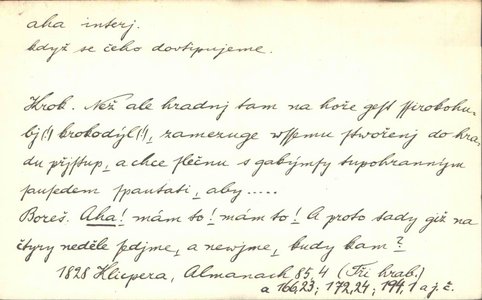 aha interj.
když se čeho dovtipujeme.
Hrok. Než ale hradnj tam na hoře gest ssirokohu-
bý(!) krokodýl(!), zamezuge wssemu stwořenj do hra-
du přjstup, a chce slečnu s gakýmsy tupohranným
sausedem spautati, aby.....
Boreš. Aha! mám to! mám to! A proto tady giž na
čtyry neděle sedjme, a newjme, kudy kam?
1828 Klicpera, Almanach 85,4 (Tři hrab.)
a 166,23; 172,24; 194,1 a j. č.